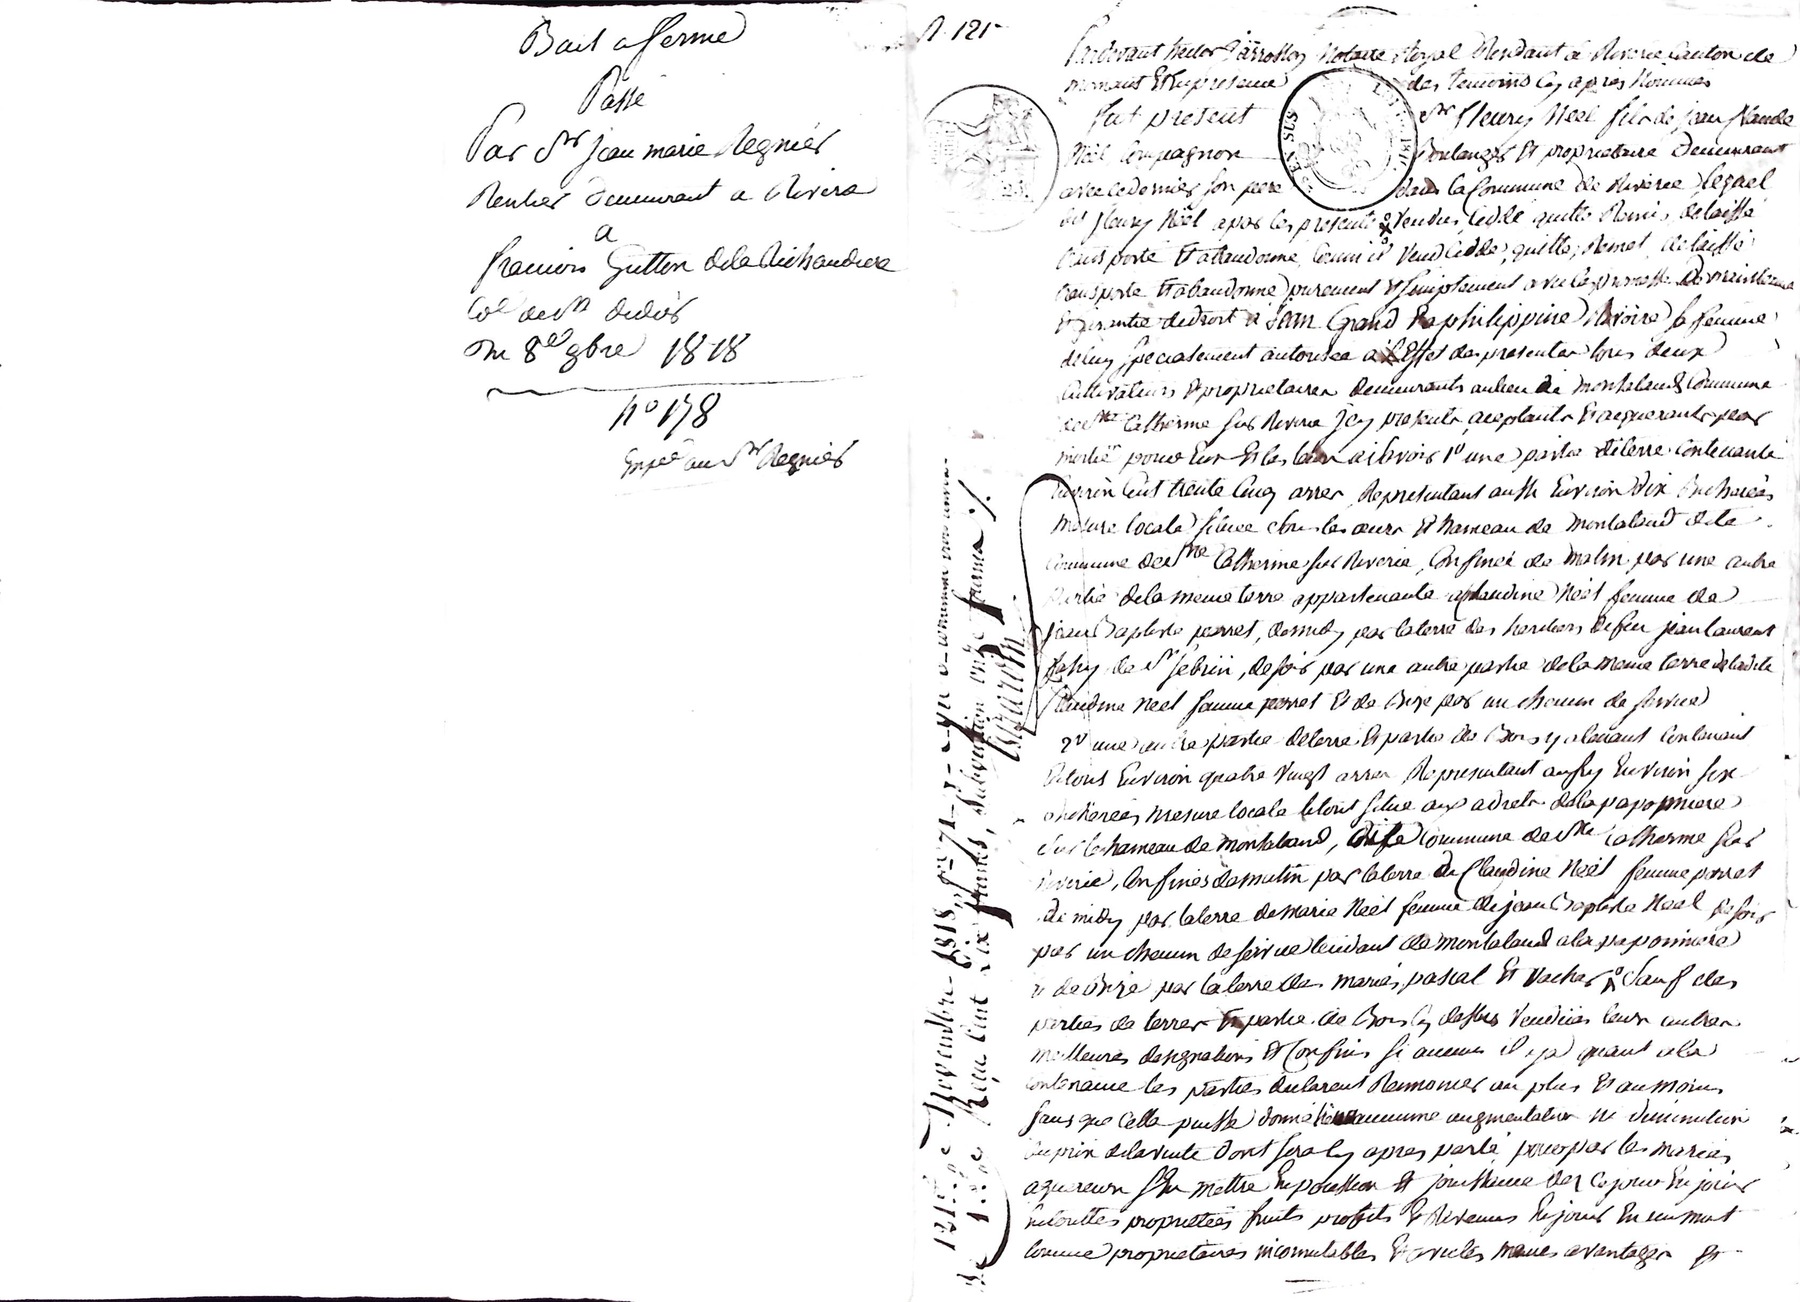 Bail a ferme
Passé
Par Sr jean marie Regnier
Rentier demeurant a Riverie
a
francois Gutton dela Richaudiere
Cne de St didier
Du 8 9bre 1818
no 178
Expee au Sr Regnier
N. 121
Pardevant Notaire Royal Residant à Riverie Canton de
mornant Et En presence des temoins Cy apres Nommés
fut present Sr fleury Néel fils de jean Claude
Néel Compagnon Boulanger Et proprietaire Demeurant
avec ce dernier son pere dans la Commune de Riverie, lequel
dit fleury Néel a par les presentes Vendu, Cédé, quitté Remis, delaissé
transporté Et abandonné, Comme il Vend, Cedde, quitte, Remet, delaisse
transporte Et abandonne purement Et simplement avec les promesse De maintenue
Et garantie dedroit à Jean Grand Et a philippine Rivoire sa femme
deluy specialement autorisée a l'Effet des presentes tous deux
Cultivateurs Et proprietaires demeurants aulieu de montaland Commune
de Ste Catherine sur Riverie Icy presents, aceptants Et acquerants par
moitié pour Eux Et les leurs asavoir 1o une partie deterre Contenante
Environ Cent trente Cinq arres Representant aussi Environ dix Bicherées
mesure locale située sous les aures Et hameau de montaland dela
Commune de Ste Catherine sur Riverie, Confinée de matin par une autre
partie dela meme terre appartenante a Claudine Néel femme de
jean Baptiste perret, de midy par laterre des heritiers de feu jean laurent
de St , de soir par une autre partie dela meme terre deladite
Claudine Néel femme perret Et de Bize par un chemin de service
2o une autre partie deterre Et partie de Bois y alenant Contenant
letout Environ quatre Vingt arres Representant aussy Environ six
Bicherées mesure locale letout situé aux adrets dela paponniere
sur le hameau de montaland, Commune de Ste Catherine sur
Riverie, Confinés de matin par laterre de Claudine Néel femme perret
de midy par laterre de marie Néel femme de jean Baptiste Néel de soir
par un chemin de service tendant de montaland ala paponniere
Et de Bize par laterre des mariés pascal Et Vacher Sauf des
parties de terres Et partie de Bois Cy dessus Vendües leurs autres
meilleures designations Et Confins si aucuns il y a quant ala
contenance les parties declarent Renoncer au plus Et au moins
sans que Cella puisse donner lieu a aucune augmentation ni diminution
du prix delavente dont sera Cy apres parlé pour par les mariés
aquereurs s'En mettre En possession Et jouissance dez Cejour En jouir
En touttes proprietées fruits profits Et Revenus En jouir En un mot
Comme proprietaires incomutables Et avec les memes avantages Et